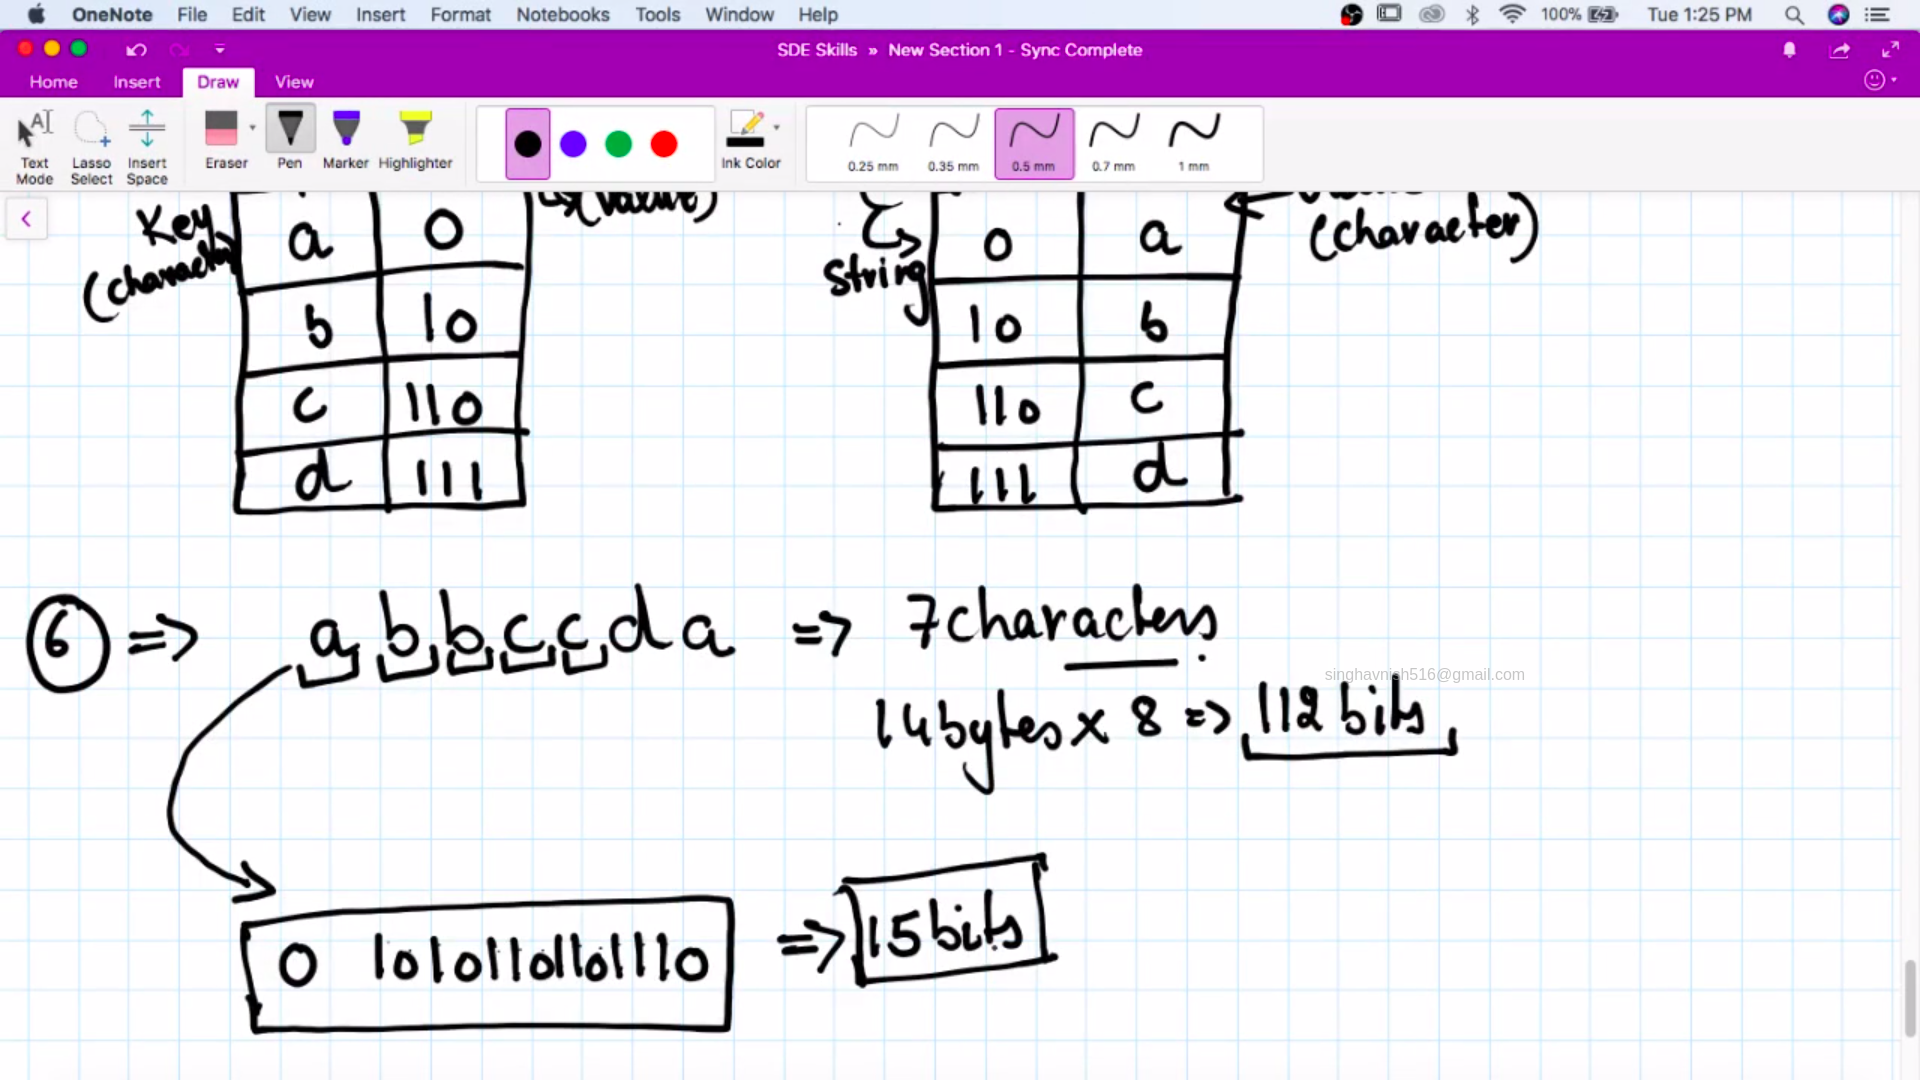 OneNote File Edit View Insert Format Notebooks Tools Window Help 100% Tue 1:25 PM
SDE Skills » New Section 1 - Sync Complete
Home Insert Draw View
Text Mode
Lasso Select
Insert Space
Eraser
Pen
Marker
Highlighter
Ink Color
0.25 mm
0.35 mm
0.5 mm
0.7 mm
1 mm
Key
(character)
(value)
a 0
b 10
c 110
d 111
String
(character)
0 a
10 b
110 c
111 d
6 => a b b c c d a => 7 characters
singhavnish516@gmail.com
14 bytes x 8 => 112 bits
0 10101101101110 => 15 bits